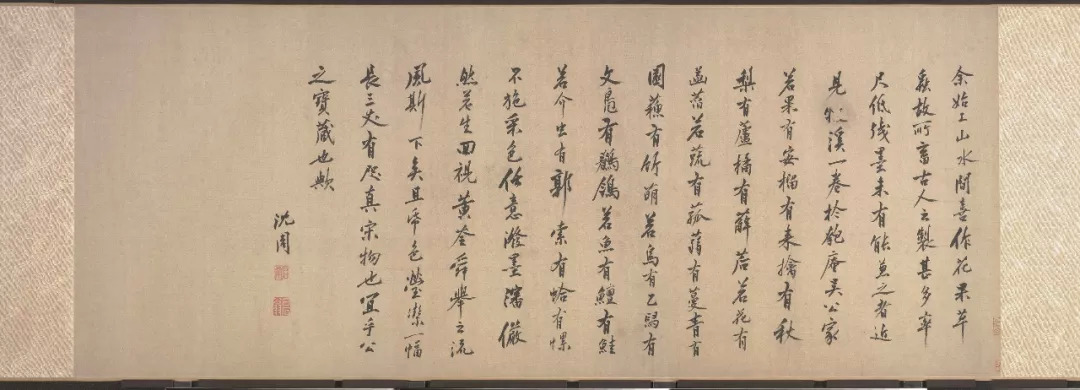 余始工山水間喜作花果草
蟲故所畜古人之製甚多率
尺低殘墨未有能兼之者近
見牧溪一卷於匏庵吳公家
若果有安榴有来擒有秋
梨有蘆橘有薢茩若花有
菡萏若蔬有菰蒻有蔓菁有
園蘓有竹萌若鳥有乙舄有
文鳧有鶺鴒若魚有鱣有鮭
若介虫有郭索有蛤有螺
不施采色任意潑墨瀋儼
然若生回視黄荃舜舉之流
風斯下矣且帋色瑩潔一幅
長三丈有咫真宋物也宜乎公
之寶藏也歟
沈周